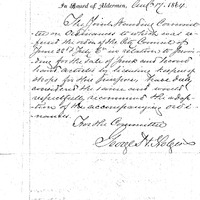 In Board of Aldermen, Aug 17, 1864.
The Joint Standing Committee
on Ordinances to which was re-
ferred the order of the City Council of
June 22d July 6th in relation to
for the sale of junk and second
hand articles by licensing keepers of
shops for these purposes, have duly
considered the same and would
respectfully recommend the adop-
tion of the accompanying ordi-
nance.
For the Committee